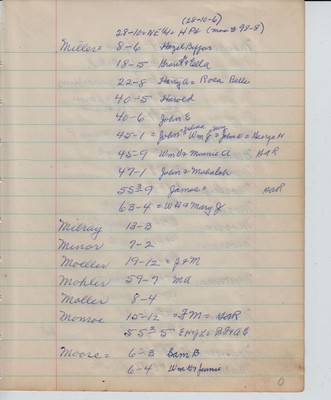 (28-10-6)
28-10 = NE 1/4 = H Pl (now # 98-8)
Millers 8-6 Hazel
18-5 Grant & Ella
22-8 Harry A = Rosa Belle
40-5 Harold
40-6 John E
45-1 = John Wm J = = George H
45-9 Wm W & Mamie A GAR
47-1 John & Mahalah
55-9 James = GAR
63-4 = W H & Mary J
Milray 13-3
Minor 7-2
Moeller 19-12 = J & M
Mohler 59-7 M A
Moller 8-4
Monroe 15-12 = F M = GAR
55-5
Moore = 6-3 Sam B
6-4 Wm & Jennie